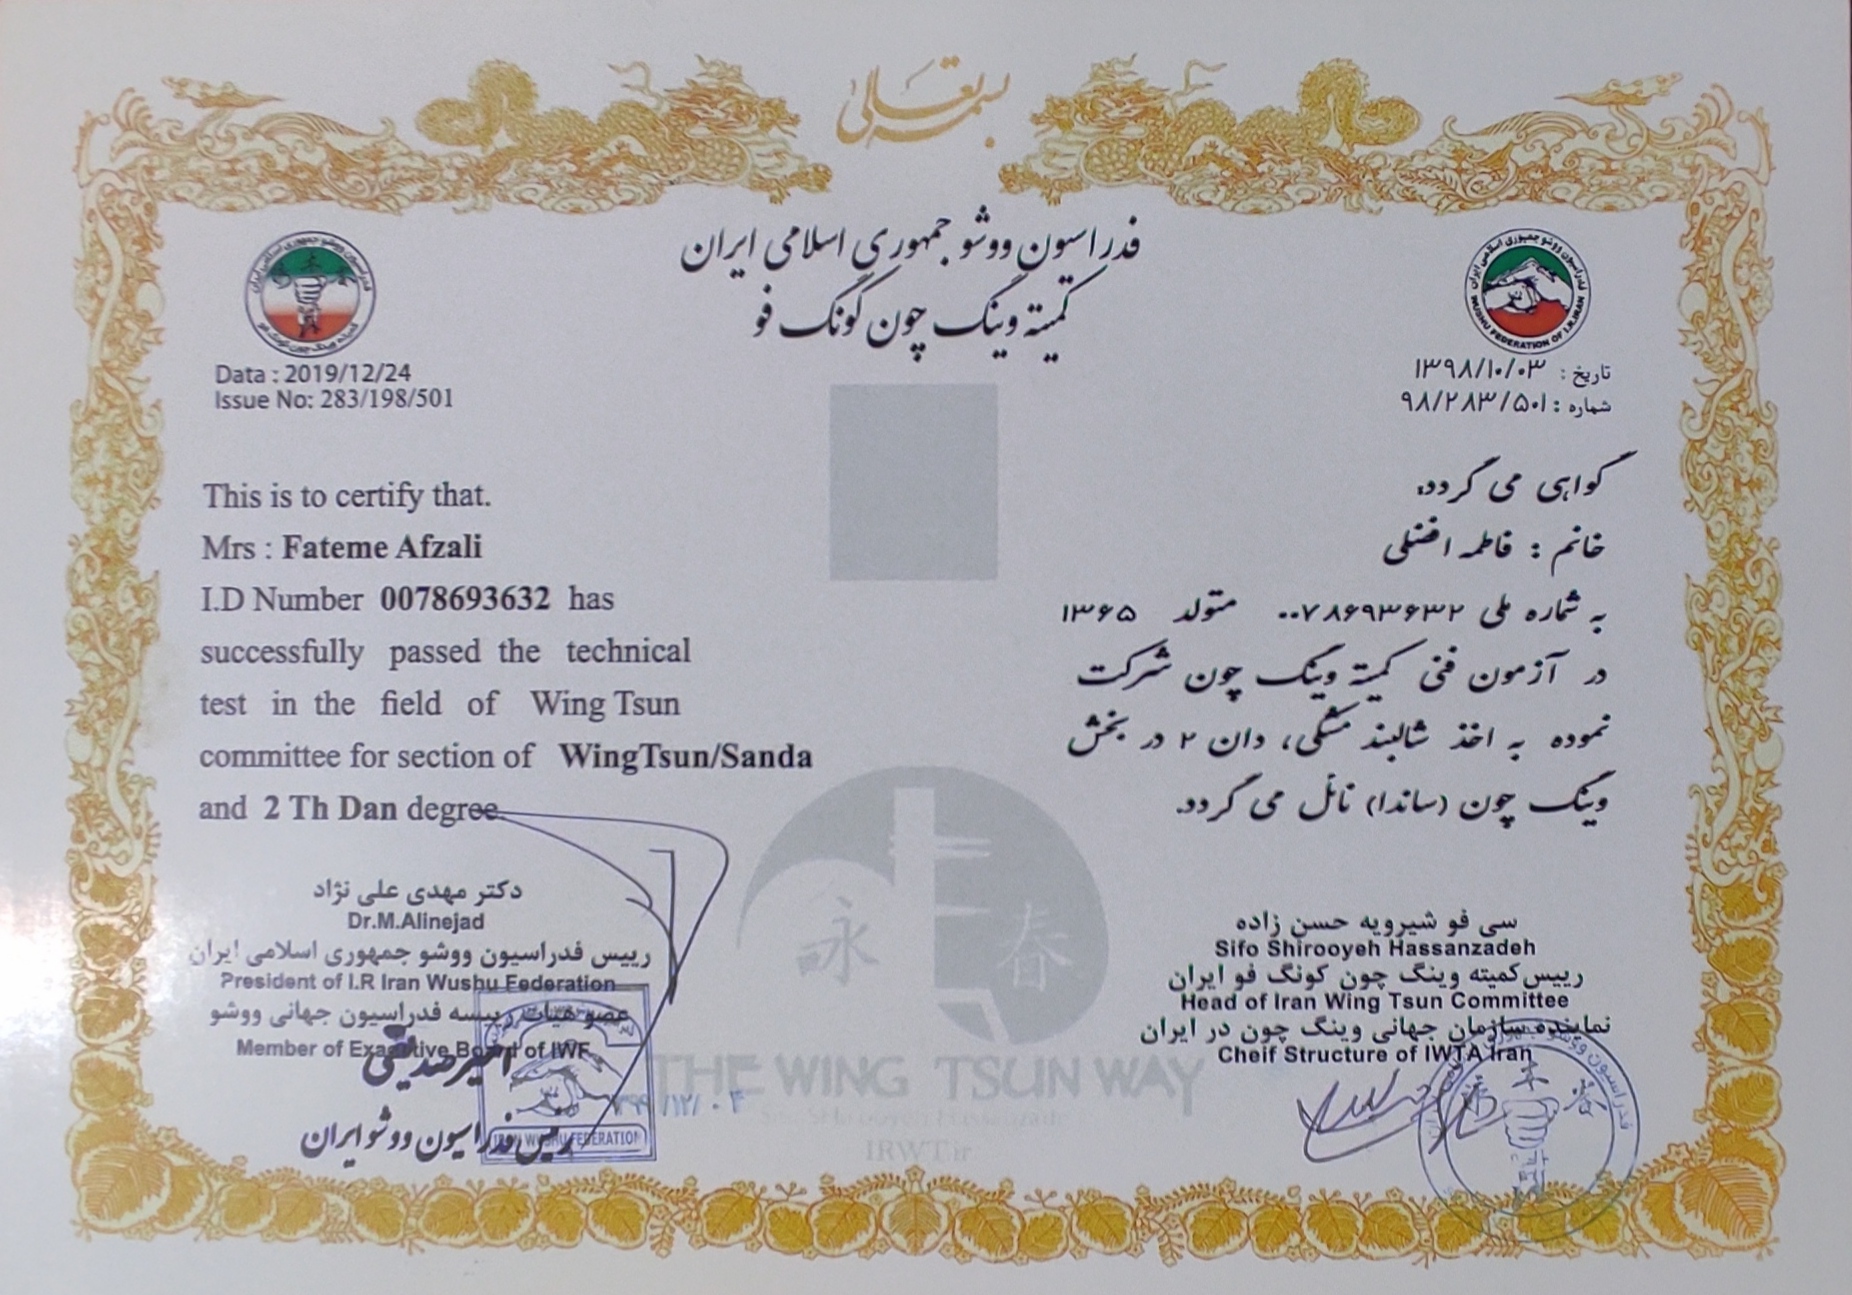 بسمه تعالی
فدراسیون ووشو جمهوری اسلامی ایران
کمیته وینگ چون گونگ فو
Data : 2019/12/24
Issue No: 283/198/501
تاریخ : ۱۳۹۸/۱۰/۰۳
شماره : ۹۸/۲۸۳/۵۰۱
WUSHU FEDERATION OF I.R.IRAN
فدراسیون ووشو جمهوری اسلامی ایران
This is to certify that.
Mrs : Fateme Afzali
I.D Number 0078693632 has
successfully passed the technical
test in the field of Wing Tsun
committee for section of WingTsun/Sanda
and 2 Th Dan degree.
گواهی می گردد:
خانم : فاطمه افضلی
به شماره ملی ۰۰۷۸۶۹۳۶۳۲ متولد ۱۳۶۵
در آزمون فنی کمیته وینگ چون شرکت
نموده به اخذ شالبند مشکی، دان ۲ در بخش
وینگ چون (ساندا) نائل می گردد.
دکتر مهدی علی نژاد
Dr.M.Alinejad
رییس فدراسیون ووشو جمهوری اسلامی ایران
President of I.R Iran Wushu Federation
عضو هیات رییسه فدراسیون جهانی ووشو
Member of Exacutive Board of IWF
امیر صدیقی
رییس فدراسیون ووشو ایران
IRAN WUSHU FEDERATION
سی فو شیرویه حسن زاده
Sifo Shirooyeh Hassanzadeh
رییس کمیته وینگ چون کونگ فو ایران
Head of Iran Wing Tsun Committee
نماینده سازمان جهانی وینگ چون در ایران
Cheif Structure of IWTA Iran
詠 春
THE WING TSUN WAY
IRWT.ir